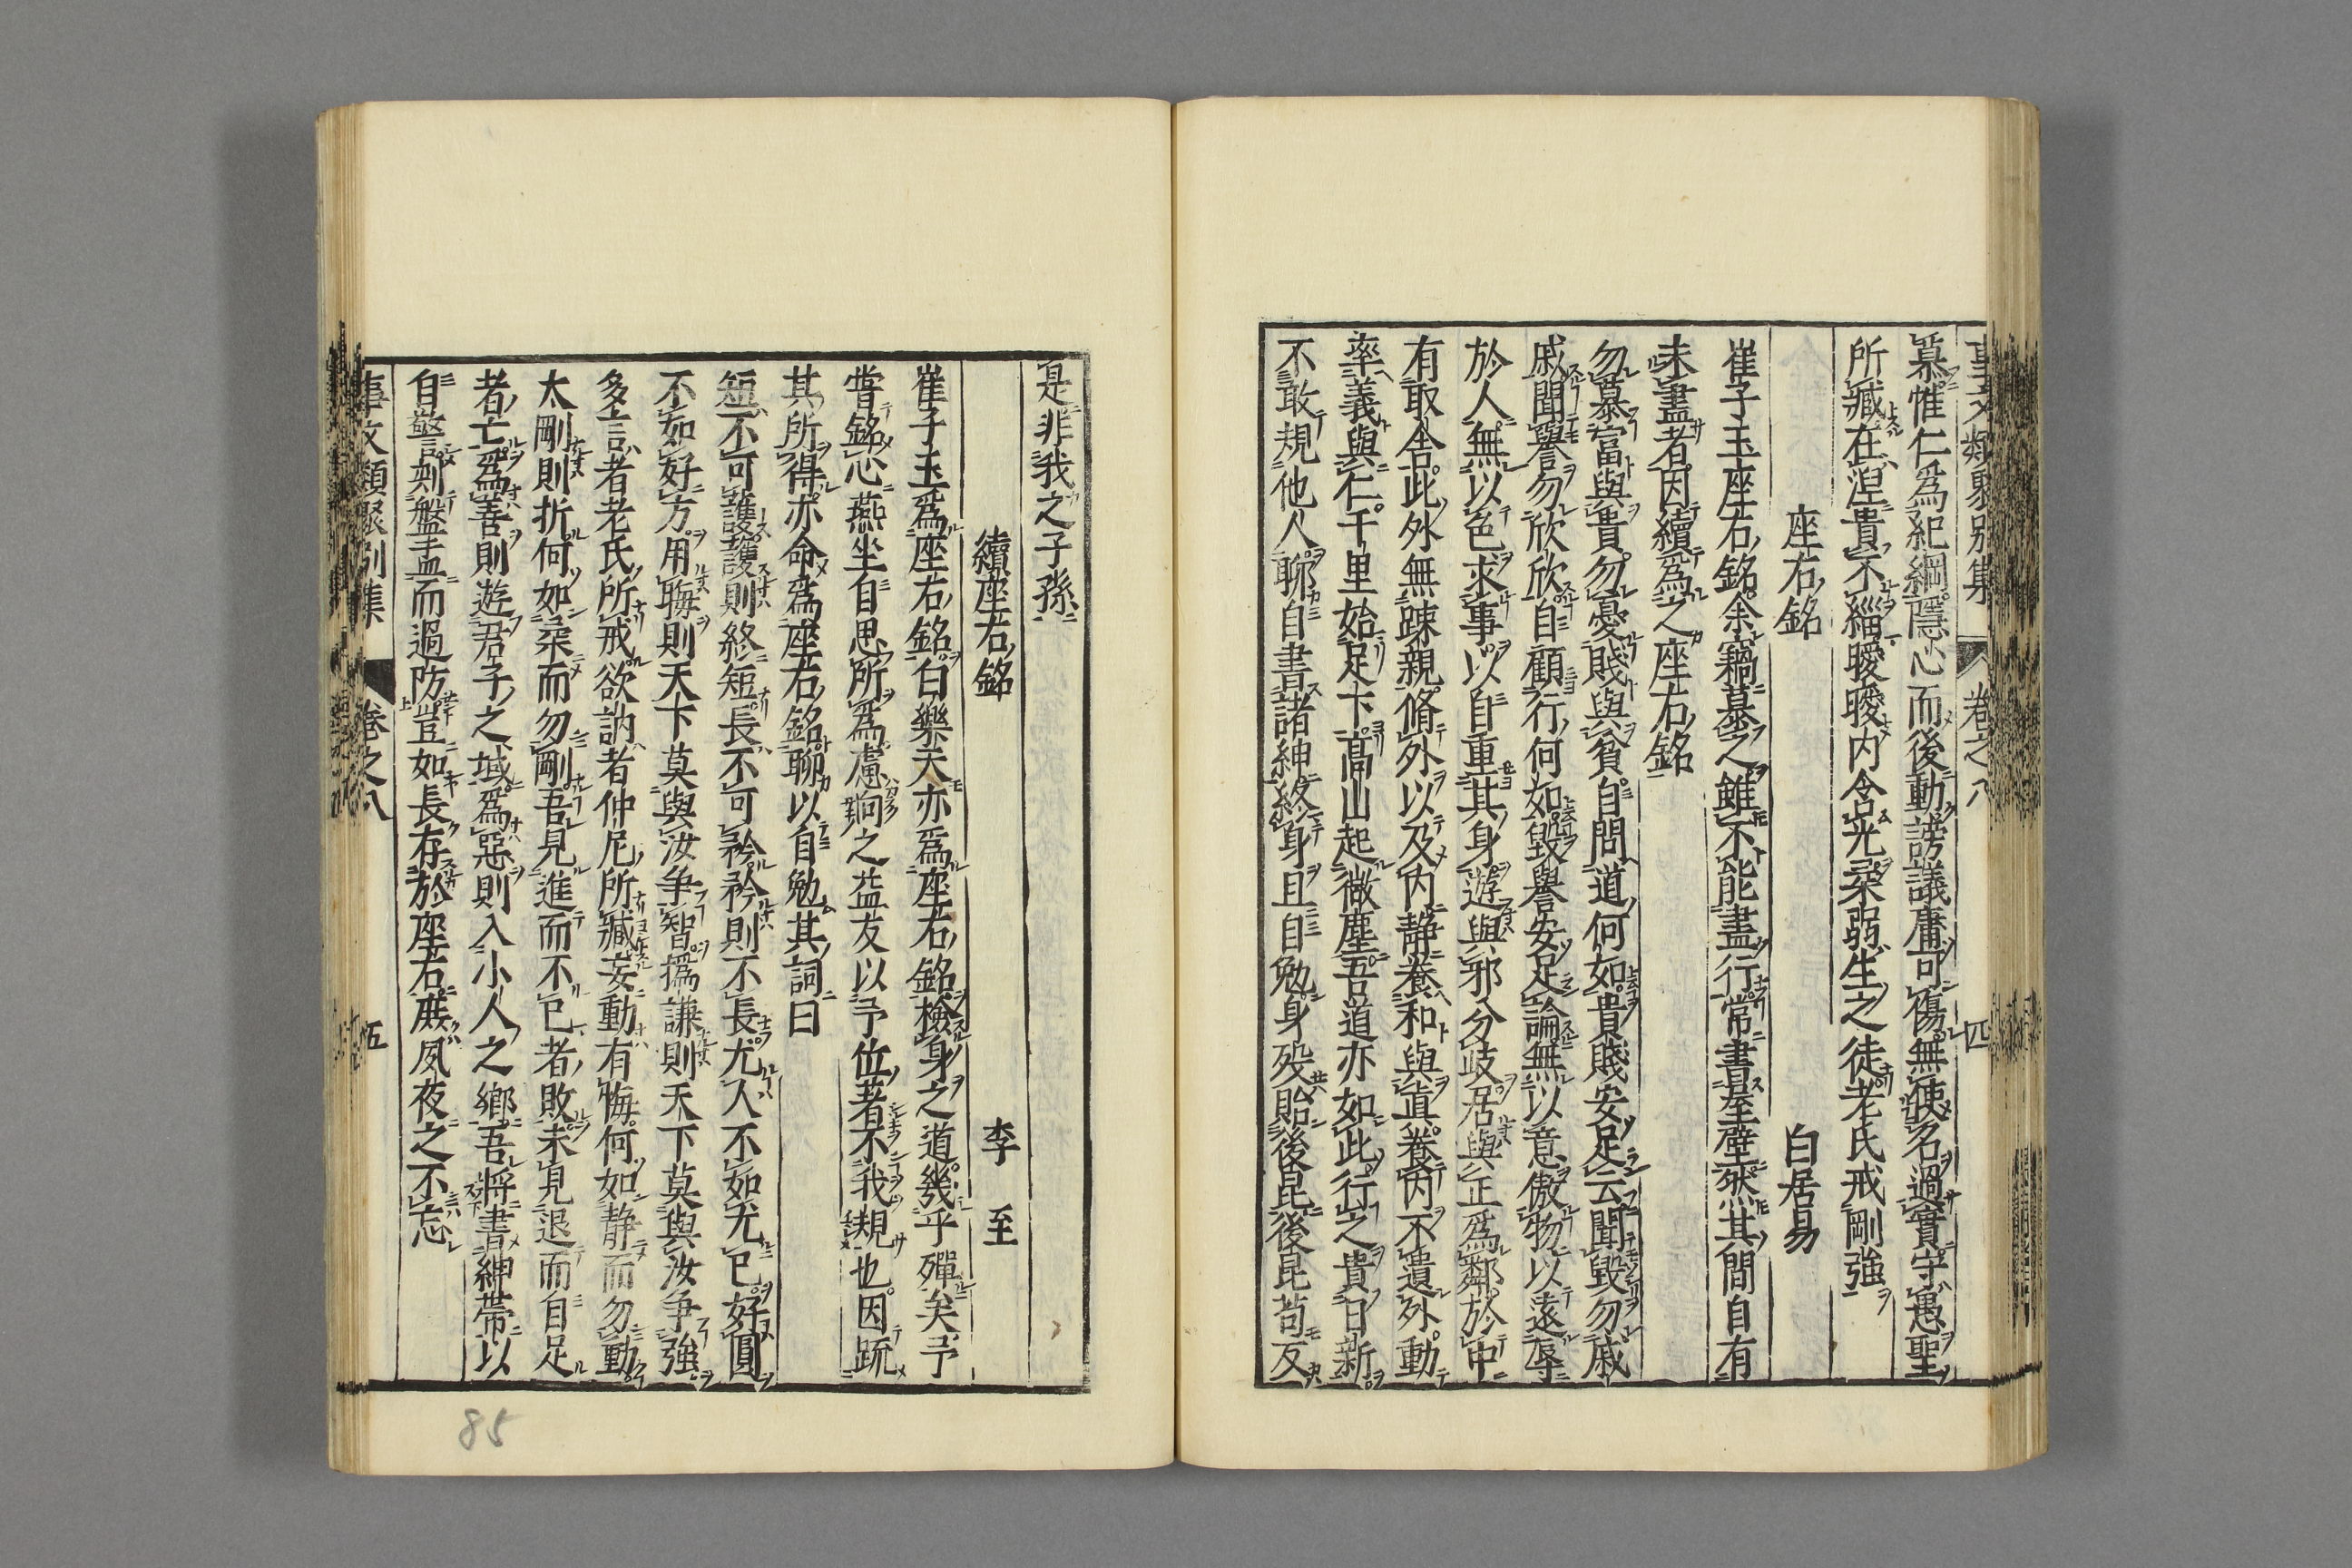 事文類聚別集 卷之八 四
慕惟仁爲紀綱隱心而後動謗議庸可傷無使名過實守愚聖
所臧在涅貴不緇曖曖内含光柔弱生之徒老氏戒剛強
座右銘 白居易
崔子玉座右銘余竊慕之雖不能盡行常書屋壁然其間自有
未盡者因續爲之座右銘
勿慕富與貴勿憂賤與貧自問道何如貴賤安足云聞毀勿戚
戚聞譽勿欣欣自顧行何如毀譽安足論無以意傲物以遠辱
於人無以色求事以自重其身遊與邪分岐居與正爲鄰於中
有取舍此外無踈親脩外以及内静養和與眞養内不遺外動
率義與仁千里始足下高山起微塵吾道亦如此行之貴日新
不敢規他人聊自書諸紳終身且自勉身殁貽後昆後昆苟反
是非我之子孫
續座右銘 李至
崔子玉爲座右銘白樂天亦爲座右銘檢身之道幾乎殫矣予
嘗銘心燕坐自思所爲慮驹之益友以予位者不我規也因疏
其所得亦命爲座右銘聊以自勉其詞曰
短不可護護則終短長不可矜矜則不長尤人不如尤己好圓
不如好方用晦則天下莫與汝争智撝謙則天下莫與汝争強
多言者老氏所戒欲訥者仲尼所臧妄動有悔何如静而勿動
太剛則折何如柔而勿剛吾見進而不已者敗未見退而自足
者亡爲善則遊君子之域爲惡則入小人之鄉吾將書紳帶以
自警刻盤盂而過防豈如長存於座右庶夙夜之不忘
事文類聚別集 卷之八 五
85